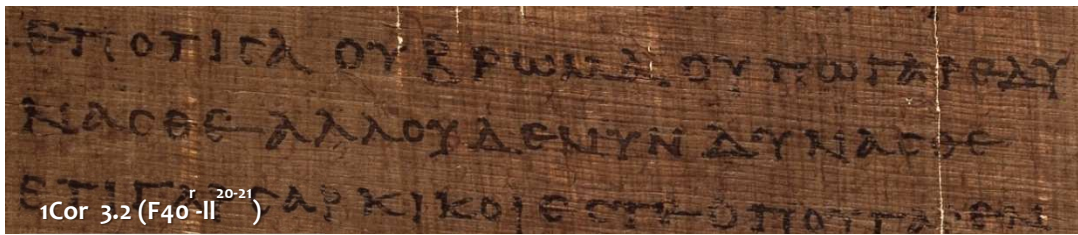 ΕΠΟΤΙϹΑ ΟΥ ΒΡΩΜΑ ΟΥΠΩ ΓΑΡ ΕΔΥ
ΝΑϹΘΕ ΑΛΛΟΥΔΕ ΝΥΝ ΔΥΝΑϹΘΕ
ΕΤΙ ΓΑΡ ϹΑΡΚΙΚΟΙ ΕϹΤΕ ΟΠΟΥ ΓΑΡ ΕΝ
1Cor 3.2 (F40r-II20-21)